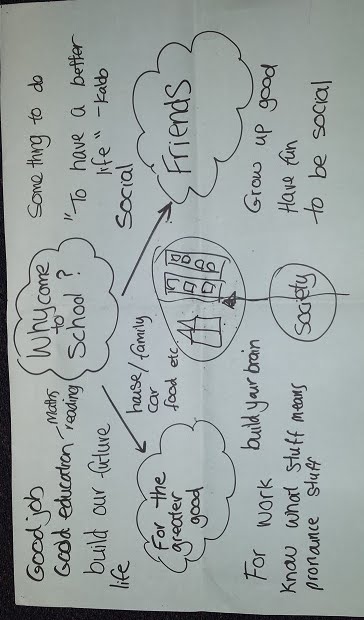 Good job
Goold education - Maths
reading
build our future
life
Why come
to
School?
Something to do
"To have a better
life" - Kaldo
Social
house/family
car
food etc.
For the
greater
good
Friends
For work
build your brain
Know what stuff means
pronance stuff
Society
Grow up good
Have fun
to be social